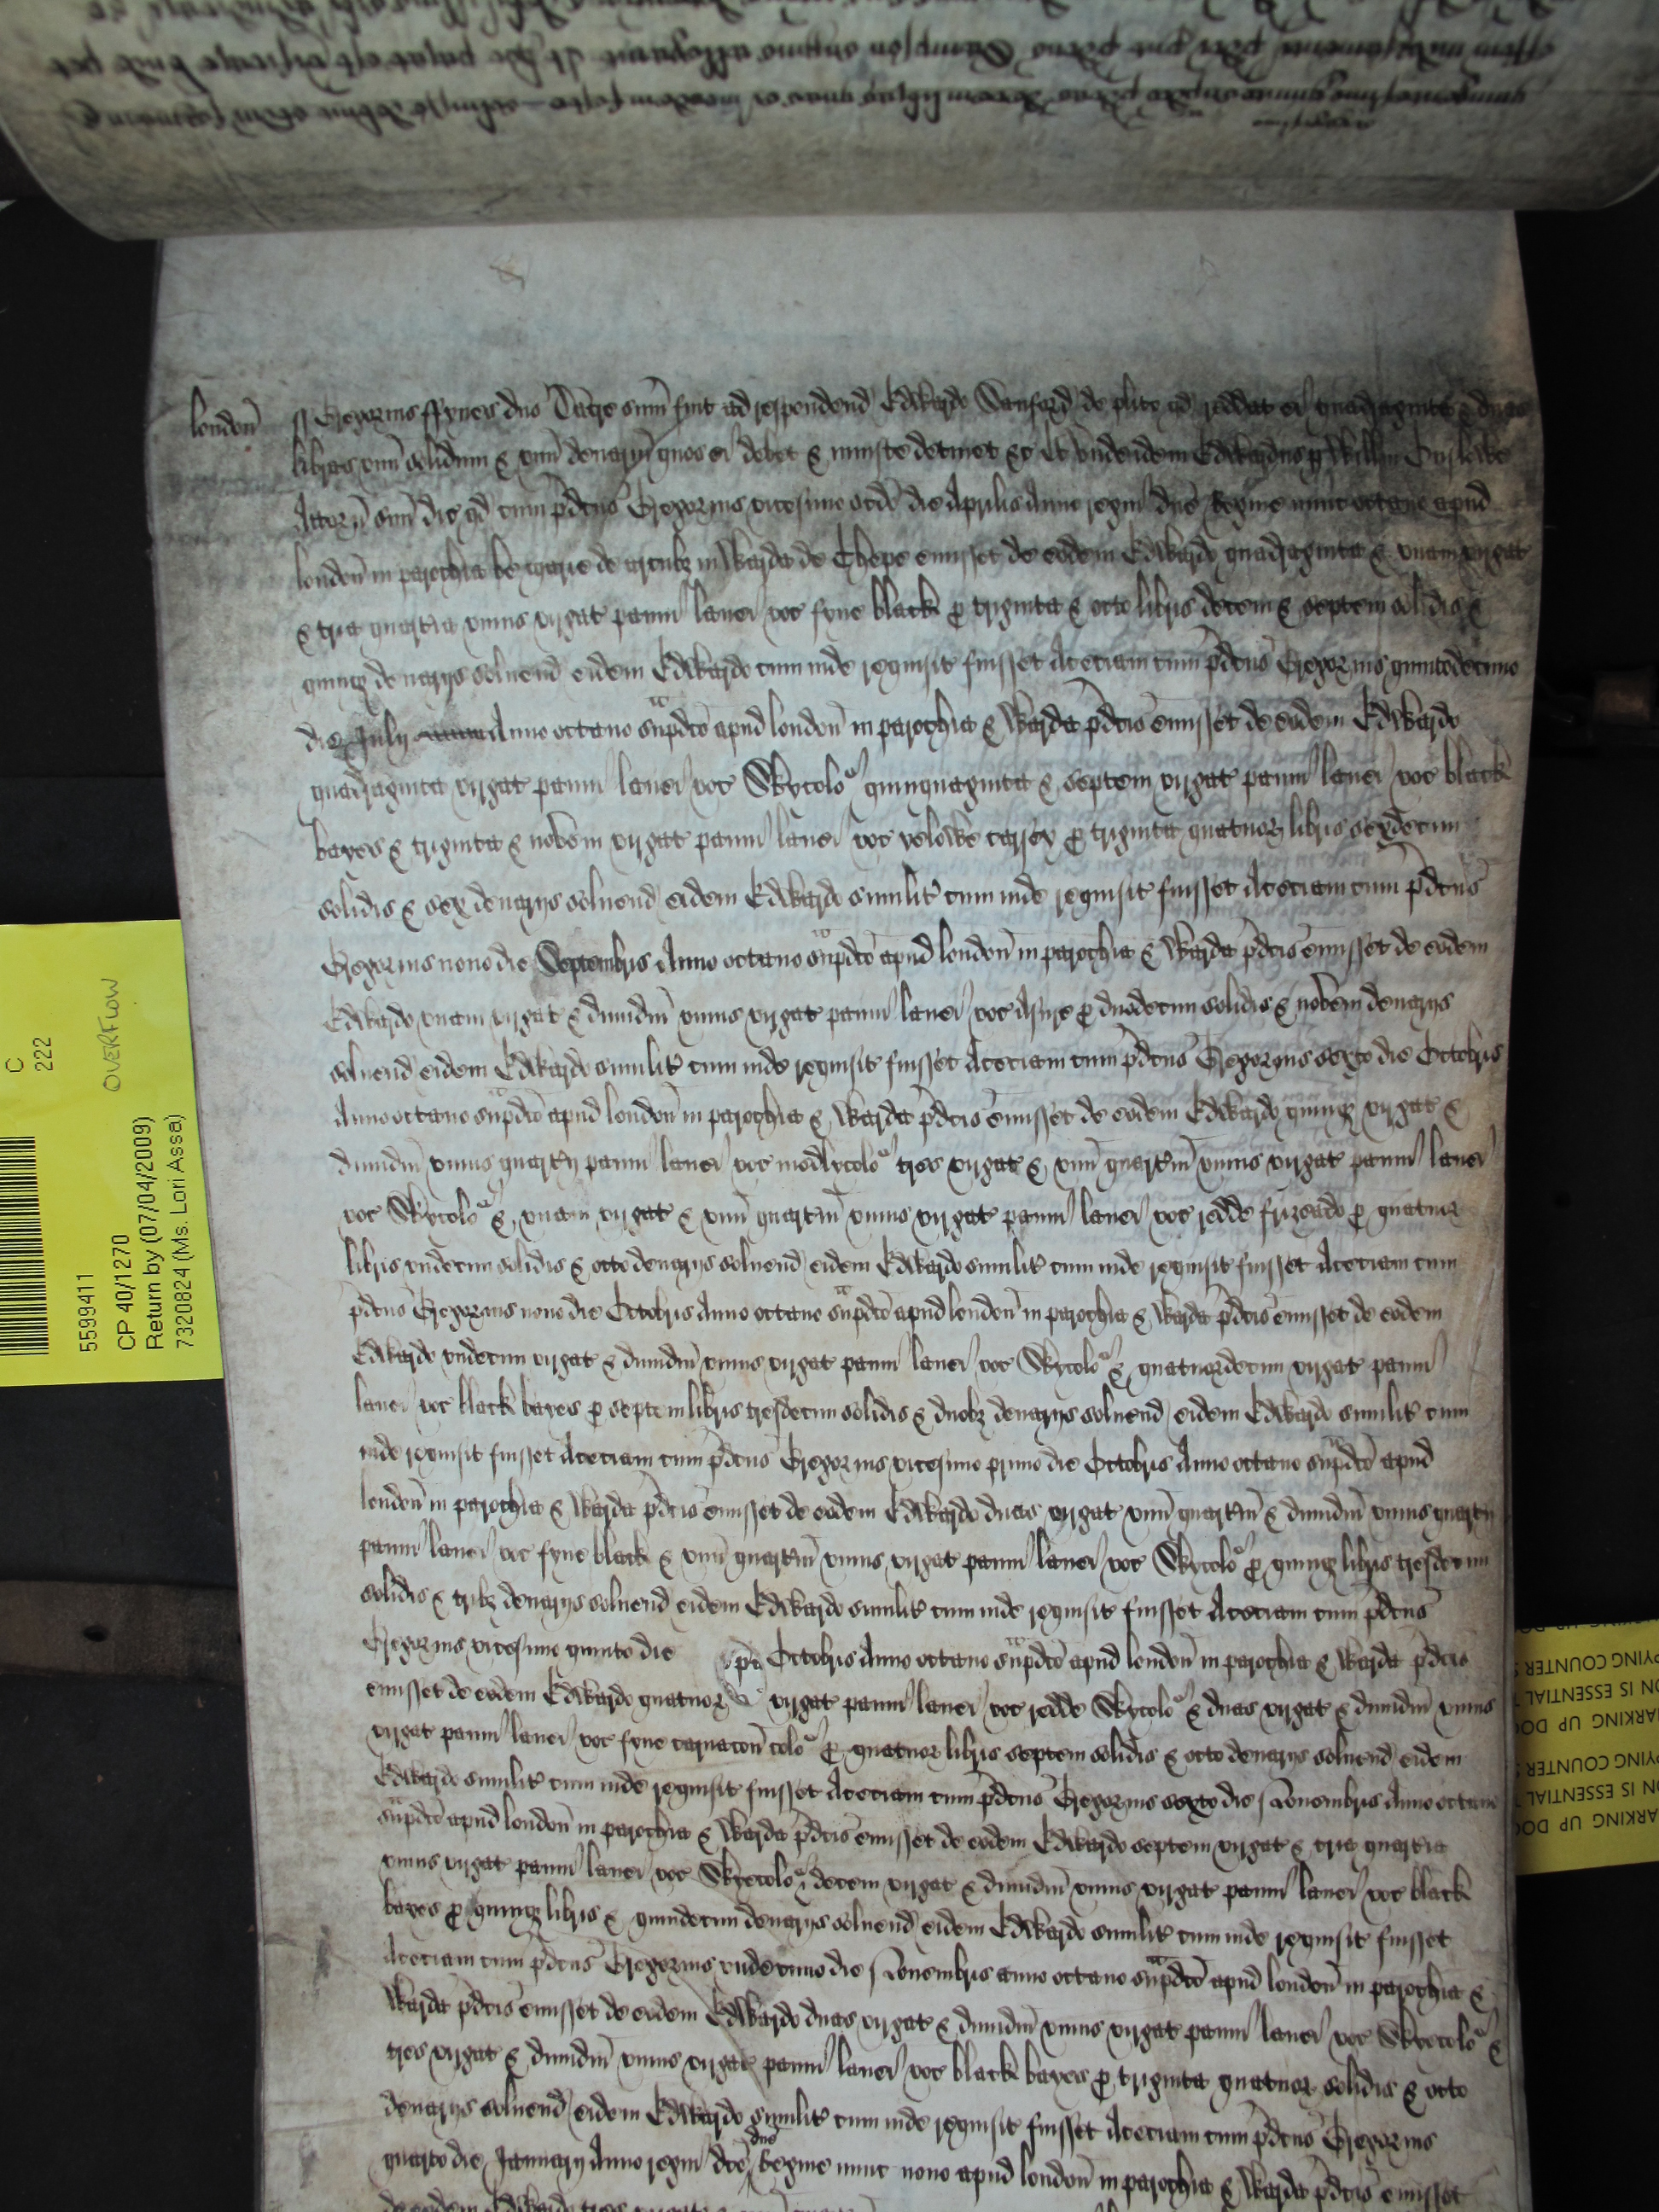 london̄ ss Gregorius ffynes dn̄s Dacre sum̄ fuit ad respondend Edwardo Sanford de plito qd reddat ei quadraginta & duas
libras unū solidum & unū denariū quos ei debet & iniuste detinet &c Et unde idem Edwardus p Willm̄ Onslowe
Attorn̄ suū dic qd cum p̄dcus Gregorius vicesimo scdo die Aprilis Anno regni dn̄e Regine nunc octavo apud
london̄ in parochia be marie de arcubz in Warda de Chepe emisset de eodem Edwardo quadraginta & unam virgat
& tria quartia unius virgat panni lanei voc fyne black p triginta & octo libris decem & septem solidis &
quinqz denarijs solvend eidem Edwardo cum inde requisit fuisset Acetiam cum p̄dcus Gregorius quintodecimo
die Julij Anno octavo sup̄dco apud london̄ in parochia & Warda p̄dcis emisset de eodem Edwardo
quadraginta virgat panni lanei voc Skycolor quinquaginta & septem virgat panni lanei voc black
bayes & triginta & novem virgat panni lanei voc yelowe carsey p triginta quatuor libris sexdecim
solidis & sex denarijs solvend eidem Edwardo similit cum inde requisit fuisset Acetiam cum p̄dcus
Gregorius nono die Septembris Anno octavo sup̄dco apud london̄ in parochia & Warda p̄dcis emisset de eodem
Edwardo unam virgat & dimidiū unius virgat panni lanei voc Asure p duodecim solidis & novem denarijs
solvend eidem Edwardo similit cum inde requisit fuisset Acetiam cum p̄dcus Gregorius sexto die Octobris
Anno octavo sup̄dco apud london̄ in parochia & Warda p̄dcis emisset de eodem Edwardo quinqz virgat &
dimidiū unius quartij panni lanei voc medlycolor tres virgat & unū quartiū unius virgat panni lanei
voc Skycolor & unam virgat & unū quartiū unius virgat panni lanei voc redde frizeado p quatuor
libris undecim solidis & octo denarijs solvend eidem Edwardo similit cum inde requisit fuisset Acetiam cum
p̄dcus Gregorius nono die Octobris Anno octavo sup̄dco apud london̄ in parochia & Warda p̄dcis emisset de eodem
Edwardo undecim virgat & dimidiū unius virgat panni lanei voc Skycolor & quatuordecim virgat panni
lanei voc black bayes p septem libris tresdecim solidis & duobz denarijs solvend eidem Edwardo similit cum
inde requisit fuisset Acetiam cum p̄dcus Gregorius vicesimo primo die Octobris Anno octavo sup̄dco apud
london̄ in parochia & Warda p̄dcis emisset de eodem Edwardo duas virgat unū quartiū & dimidiū unius quartij
panni lanei voc fyne black & unū quartiū unius virgat panni lanei voc Skycolor p quinqz libris tresdecim
solidis & tribz denarijs solvend eidem Edwardo similit cum inde requisit fuisset Acetiam cum p̄dcus
Gregorius vicesimo quinto die Octobris Anno octavo sup̄dco apud london̄ in parochia & Warda p̄dcis
emisset de eodem Edwardo quatuor virgat panni lanei voc redde Skycolor & duas virgat & dimidiū unius
virgat panni lanei voc fyne carnacon̄ color p quatuor libris septem solidis & octo denarijs solvend eidem
Edwardo similit cum inde requisit fuisset Acetiam cum p̄dcus Gregorius sexto die Novembris Anno octavo
sup̄dco apud london̄ in parochia & Warda p̄dcis emisset de eodem Edwardo septem virgat & tria quartia
unius virgat panni lanei voc Skycolor decem virgat & dimidiū unius virgat panni lanei voc black
bayes p quinqz libris & quindecim denarijs solvend eidem Edwardo similit cum inde requisit fuisset
Acetiam cum p̄dcus Gregorius undecimo die Novembris anno octavo sup̄dco apud london̄ in parochia &
Warda p̄dcis emisset de eodem Edwardo duas virgat & dimidiū unius virgat panni lanei voc Skycolor &
tres virgat & dimidiū unius virgat panni lanei voc black bayes p triginta quatuor solidis & octo
denarijs solvend eidem Edwardo similit cum inde requisit fuisset Acetiam cum p̄dcus Gregorius
quarto die Januarij Anno regni dce dn̄e Regine nunc nono apud london̄ in parochia & Warda p̄dcis emisset
C
222
OVERFLOW
5599411
CP 40/1270
Return by (07/04/2009)
7320824 (Ms. Lori Assa)
PYING COUNTER
N IS ESSENTIAL
ARKING UP DOC
PYING COUNTER
N IS ESSENTIAL
ARKING UP DOC